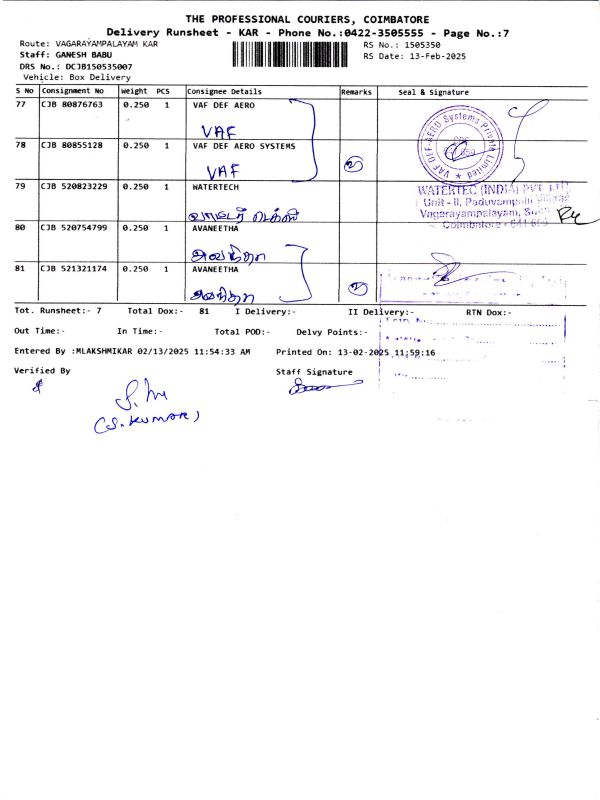 THE PROFESSIONAL COURIERS, COIMBATORE
Delivery Runsheet - KAR - Phone No.:0422-3505555 - Page No.:7
Route: VAGARAYAMPALAYAM KAR
RS No.: 1505350
Staff: GANESH BABU
RS Date: 13-Feb-2025
DRS No.: DCJB150535007
Vehicle: Box Delivery
S No Consignment No Weight PCS Consignee Details Remarks Seal & Signature
77 CJB 80876763 0.250 1 VAF DEF AERO
VAF
78 CJB 80855128 0.250 1 VAF DEF AERO SYSTEMS
VAF
2
VAF DEF-AERO Systems Private Limited
79 CJB 520823229 0.250 1 WATERTECH
WATERTEC (INDIA) PVT. LTD
Unit - II, Paduvampalli Village
Vagarayampalayam,
Coimbatore - 641 659
80 CJB 520754799 0.250 1 AVANEETHA
அவநீதா
81 CJB 521321174 0.250 1 AVANEETHA
அவநீதா
2
Tot. Runsheet:- 7 Total Dox:- 81 I Delivery:- II Delivery:- RTN Dox:-
Out Time:- In Time:- Total POD:- Delvy Points:-
Entered By :MLAKSHMIKAR 02/13/2025 11:54:33 AM Printed On: 13-02-2025 11:59:16
Verified By Staff Signature
(S. KUMAR)